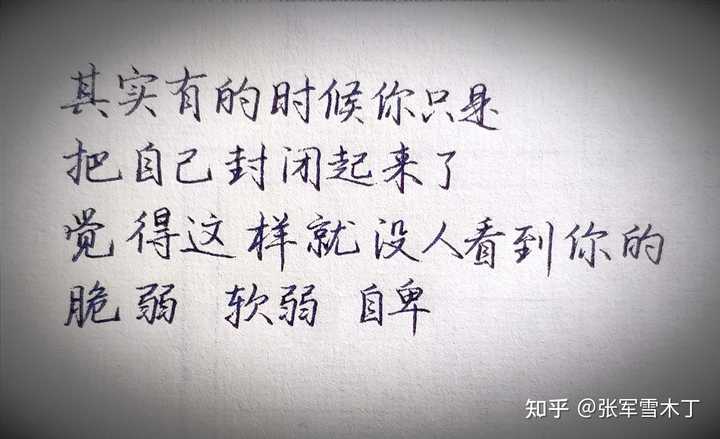 其实有的时候你只是
把自己封闭起来了
觉得这样就没人看到你的
脆弱 软弱 自卑
知乎 @张军雪木丁